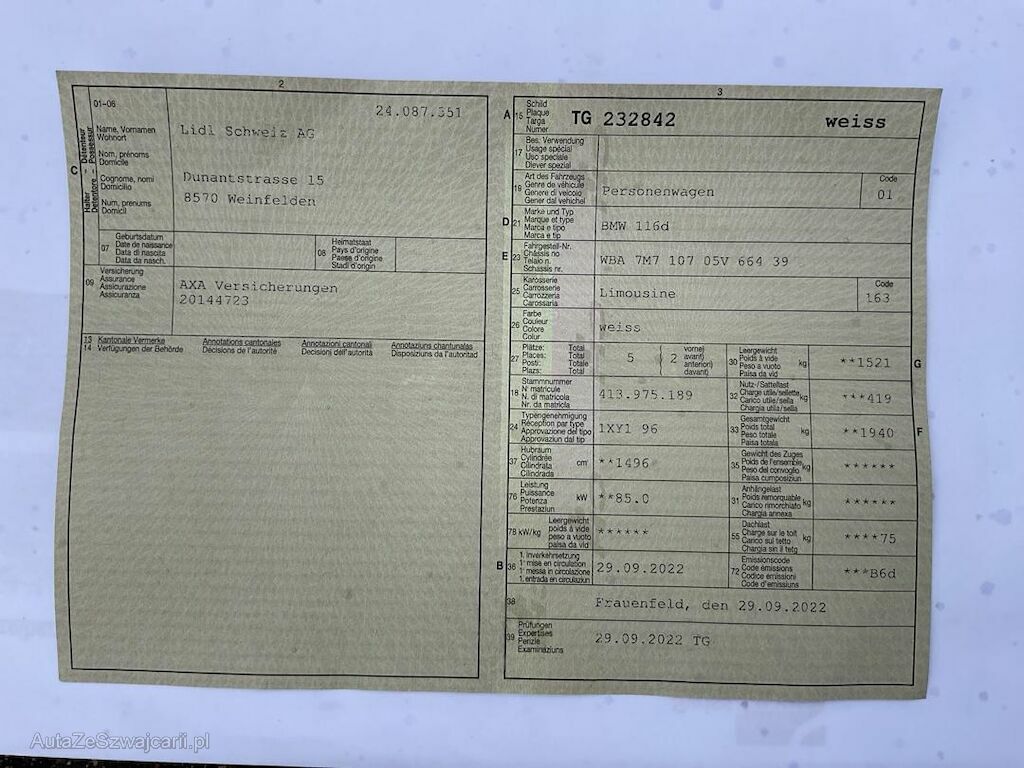 2
01-06
24.087.351
Name, Vornamen
Wohnort
Nom, prénoms
Domicile
Cognome, nomi
Domicilio
Num, prenums
Domicil
C
Halter - Détenteur
Detentore - Possessur
Lidl Schweiz AG
Dunantstrasse 15
8570 Weinfelden
07
Geburtsdatum
Date de naissance
Data di nascita
Data da nasch.
08
Heimatstaat
Pays d'origine
Paese d'origine
Stadi d'origin
09
Versicherung
Assurance
Assicurazione
Assicuranza
AXA Versicherungen
20144723
13 Kantonale Vermerke
14 Verfügungen der Behörde
Annotations cantonales
Décisions de l'autorité
Annotazioni cantonali
Decisioni dell'autorità
Annotaziuns chantunalas
Disposiziuns da l'autoritad
3
A 15
Schild
Plaque
Targa
Numer
TG 232842 weiss
17
Bes. Verwendung
Usage spécial
Uso speciale
Diever spezial
19
Art des Fahrzeugs
Genre de véhicule
Genere di veicolo
Gener dal vehichel
Personenwagen
Code
01
D 21
Marke und Typ
Marque et type
Marca e tipo
Marca e tip
BMW 116d
E 23
Fahrgestell-Nr.
Châssis no
Telaio n.
Schassis nr.
WBA 7M7 107 05V 664 39
25
Karosserie
Carrosserie
Carrozzeria
Carossaria
Limousine
Code
163
26
Farbe
Couleur
Colore
Colur
weiss
27
Plätze: Total
Places: Total
Posti: Totale
Plazs: Total
5 ( 2
vorne)
avant)
anteriori)
davant)
30
Leergewicht
Poids à vide
Peso a vuoto
Paisa da vid
kg
**1521
G
18
Stammnummer
N° matricule
N. di matricola
Nr. da matricla
413.975.189
32
Nutz-/Sattellast
Charge utile/sellette
Carico utile/sella
Chargia utila/sella
kg
***419
24
Typengenehmigung
Réception par type
Approvazione del tipo
Approvaziun dal tip
1XY1 96
33
Gesamtgewicht
Poids total
Peso totale
Paisa totala
kg
**1940
F
37
Hubraum
Cylindrée
Cilindrata
Cilindrada
cm³
**1496
35
Gewicht des Zuges
Poids de l'ensemble
Peso del convoglio
Paisa cumposiziun
kg
******
76
Leistung
Puissance
Potenza
Prestaziun
kW
**85.0
31
Anhängelast
Poids remorquable
Carico rimorchiato
Chargia annexa
kg
******
78 kW/kg
Leergewicht
poids à vide
peso a vuoto
paisa da vid
******
55
Dachlast
Charge sur le toit
Carico sul tetto
Chargia sin il tetg
kg
****75
B 36
1. Inverkehrsetzung
1re mise en circulation
1a messa in circolazione
1. entrada en circulaziun
29.09.2022
72
Emissionscode
Code émissions
Codice emissioni
Code d'emissiuns
***B6d
38
Frauenfeld, den 29.09.2022
39
Prüfungen
Expertises
Perizie
Examinaziuns
29.09.2022 TG
AutaZeSzwajcarii.pl